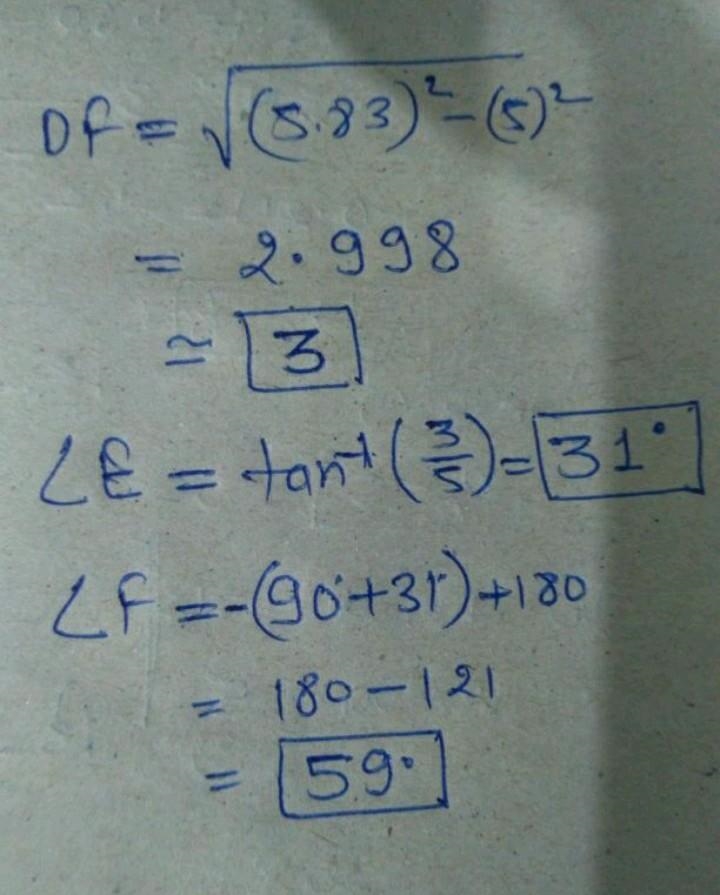 DF = √(5.83)² - (5)²
= 2.998
≃ 3
∠E = tan⁻¹ (3/5) = 31°
∠F = -(90°+31°)+180
= 180-121
= 59°